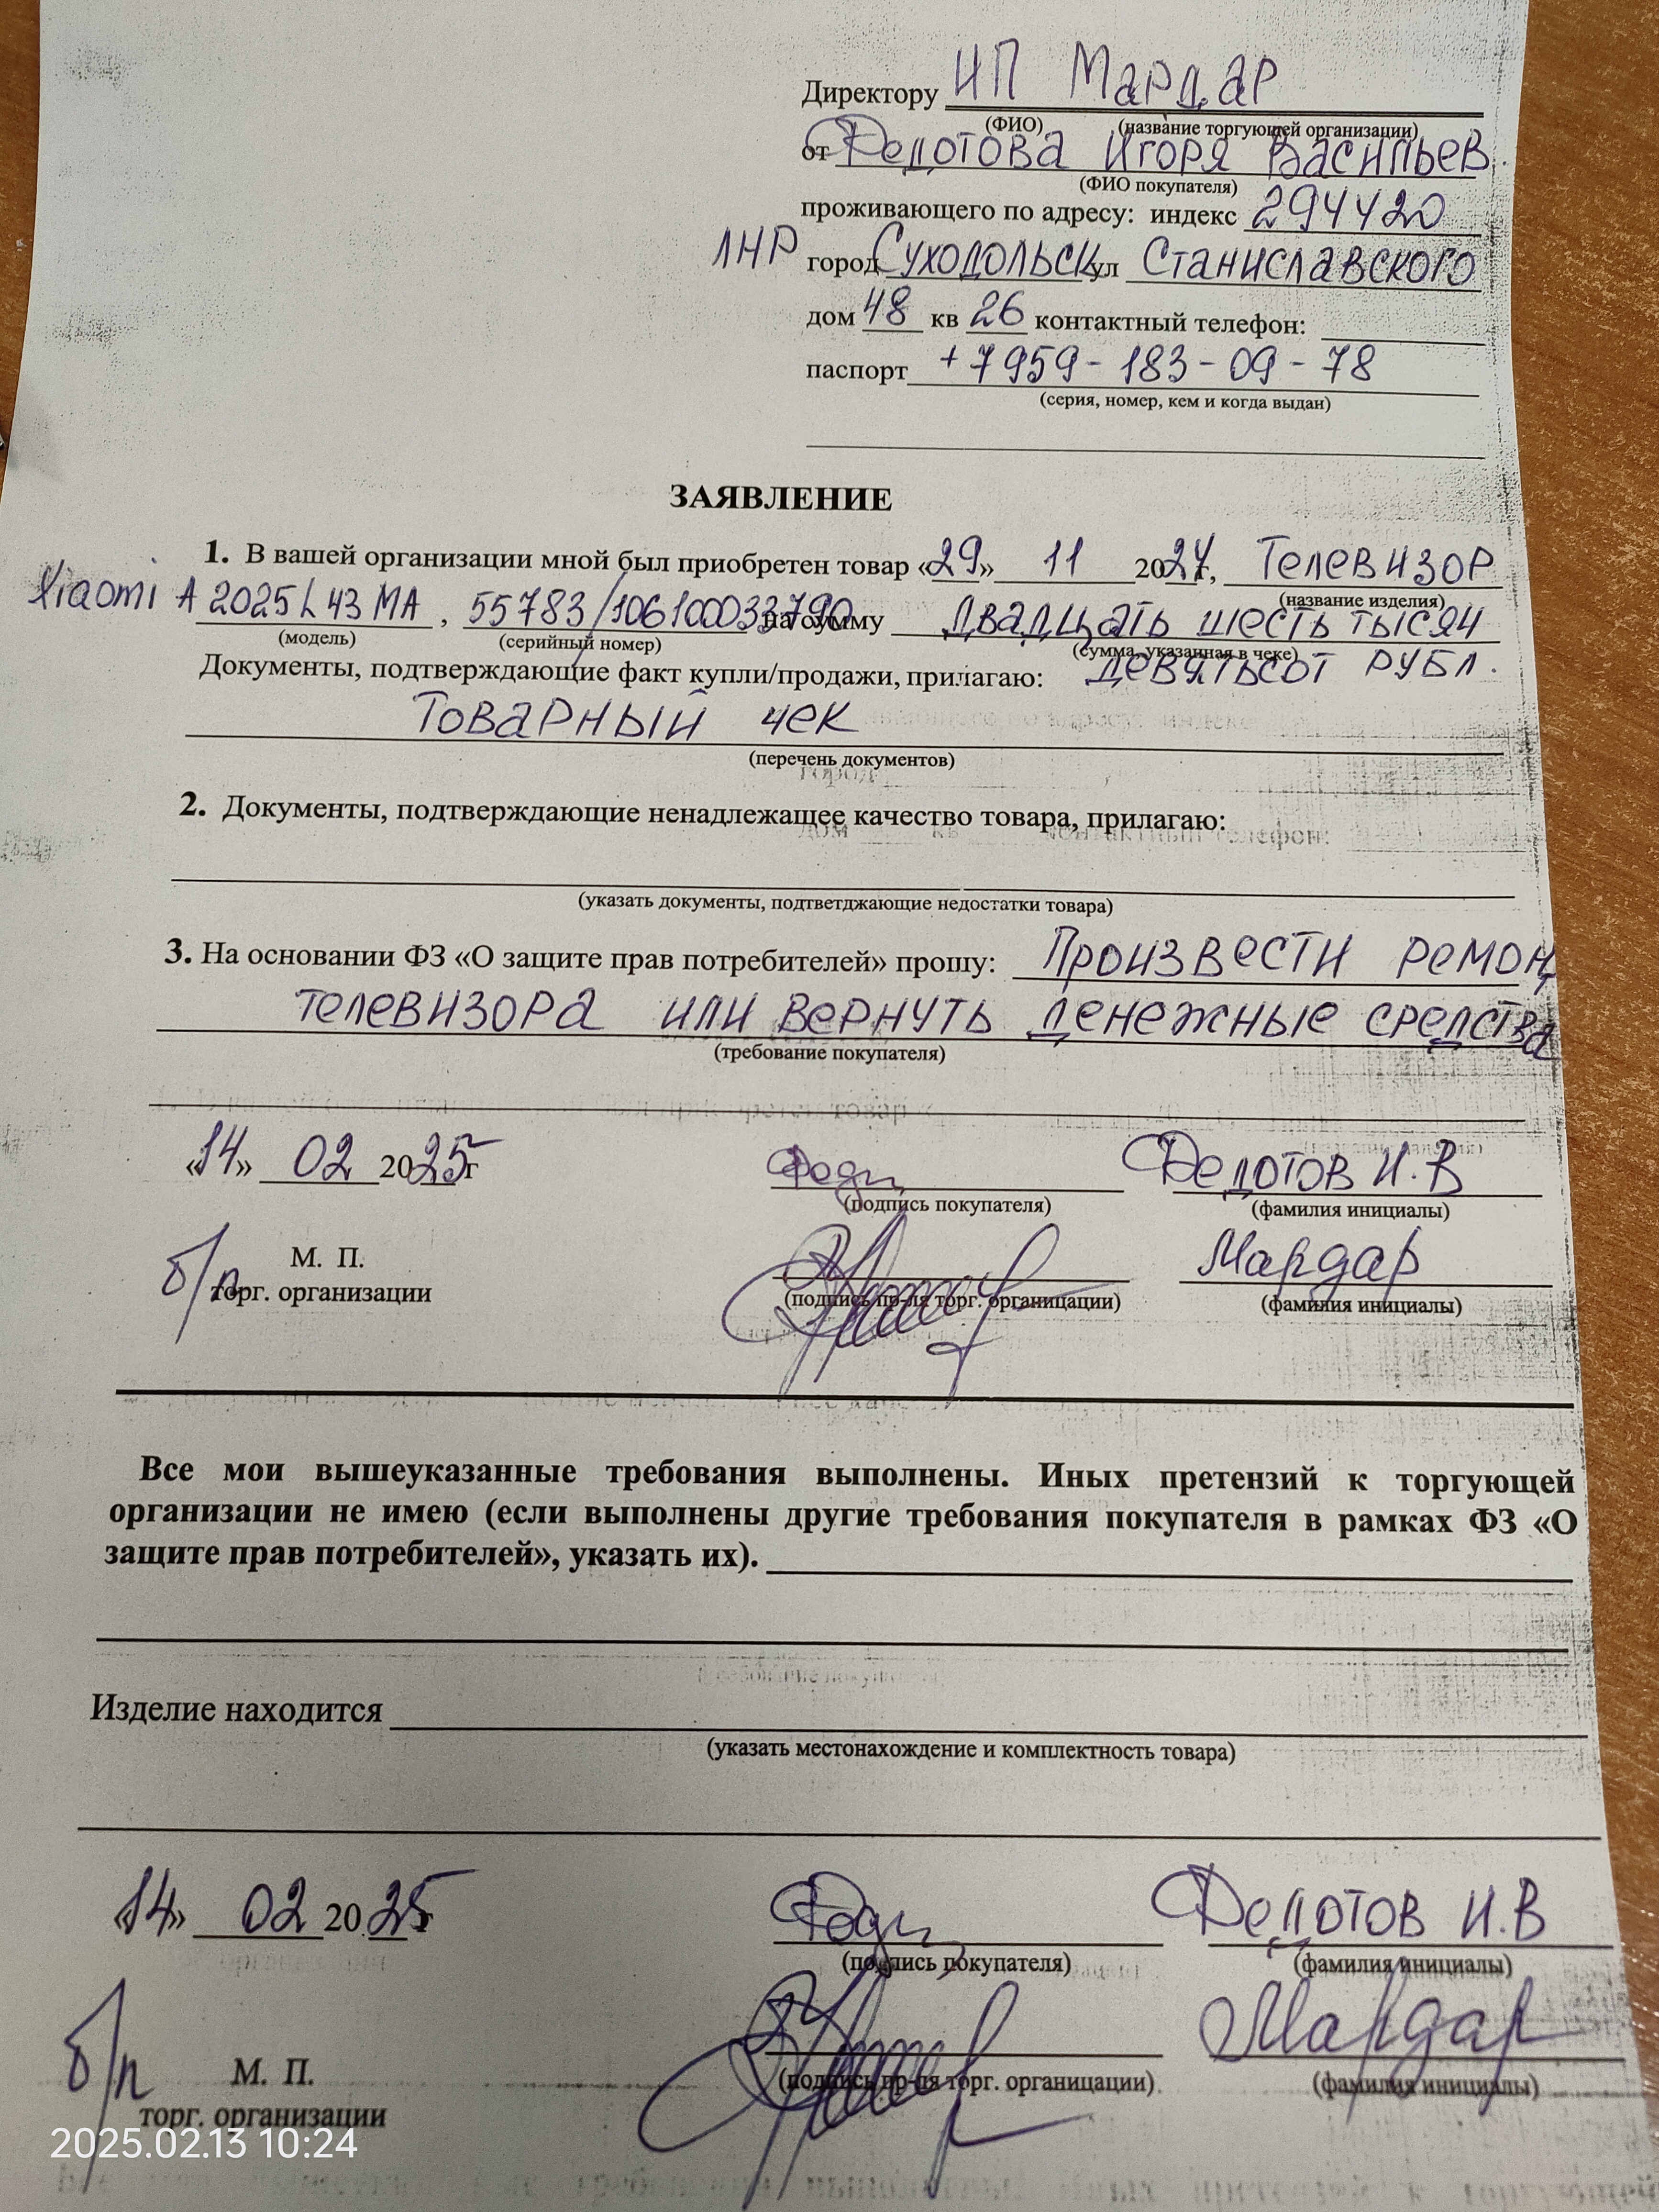 Директору ИП Мардар
(ФИО) (название торгующей организации)
от Федотова Игоря Васильев.
(ФИО покупателя)
проживающего по адресу: индекс 294420
ЛНР город Суходольск ул Станиславского
дом 48 кв 26 контактный телефон:
паспорт +7959-183-09-78
(серия, номер, кем и когда выдан)
ЗАЯВЛЕНИЕ
1. В вашей организации мной был приобретен товар «29» 11 2024г, Телевизор
(название изделия)
Xiaomi A 2025 L 43 MA, 55783/106100033790 на сумму Двадцать шесть тысяч
(модель) (серийный номер) (сумма, указанная в чеке)
Документы, подтверждающие факт купли/продажи, прилагаю: девятьсот рубл.
Товарный чек
(перечень документов)
2. Документы, подтверждающие ненадлежащее качество товара, прилагаю:
(указать документы, подтветджающие недостатки товара)
3. На основании ФЗ «О защите прав потребителей» прошу: Произвести ремонт
телевизора или вернуть денежные средства
(требование покупателя)
«14» 02 2025г Федотов И.В
(подпись покупателя) (фамилия инициалы)
б/п М. П. Мардар
торг. организации (подпись пр-ля торг. органицации) (фамилия инициалы)
Все мои вышеуказанные требования выполнены. Иных претензий к торгующей
организации не имею (если выполнены другие требования покупателя в рамках ФЗ «О
защите прав потребителей», указать их).
Изделие находится
(указать местонахождение и комплектность товара)
«14» 02 2025г Федотов И.В
(подпись покупателя) (фамилия инициалы)
Мардар
б/п М. П. (подпись пр-ля торг. органицации) (фамилия инициалы)
торг. организации
2025.02.13 10:24